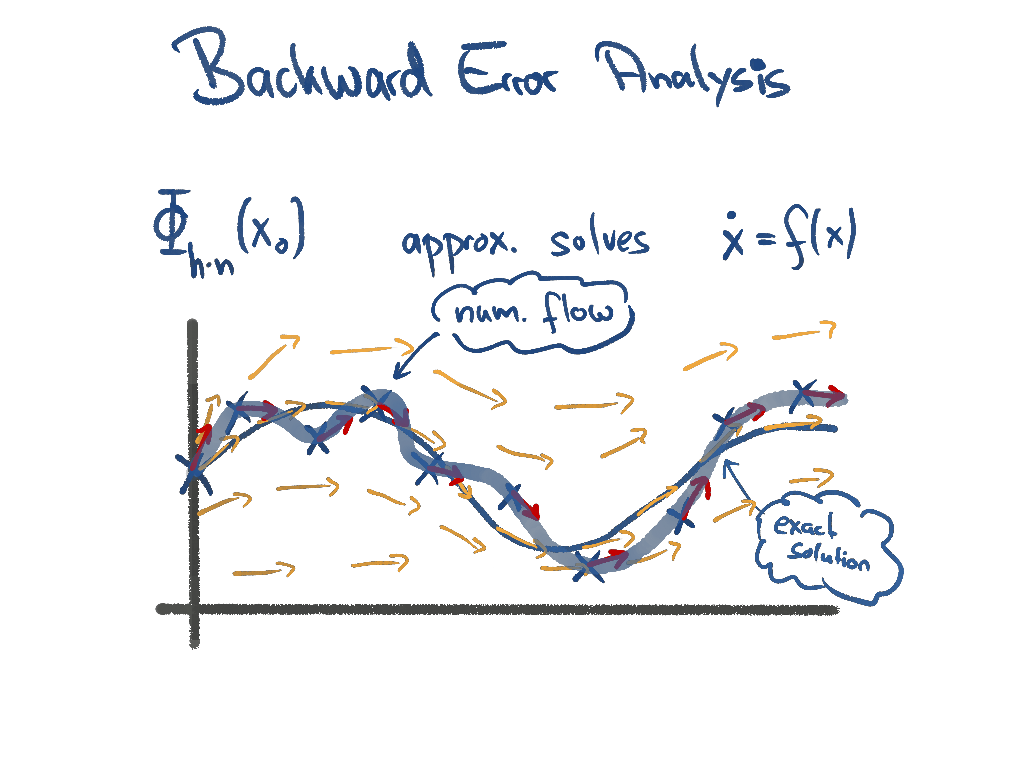 Backward Error Analysis
Φh·n (x0) approx. solves ẋ = f(x)
num. flow
exact
solution